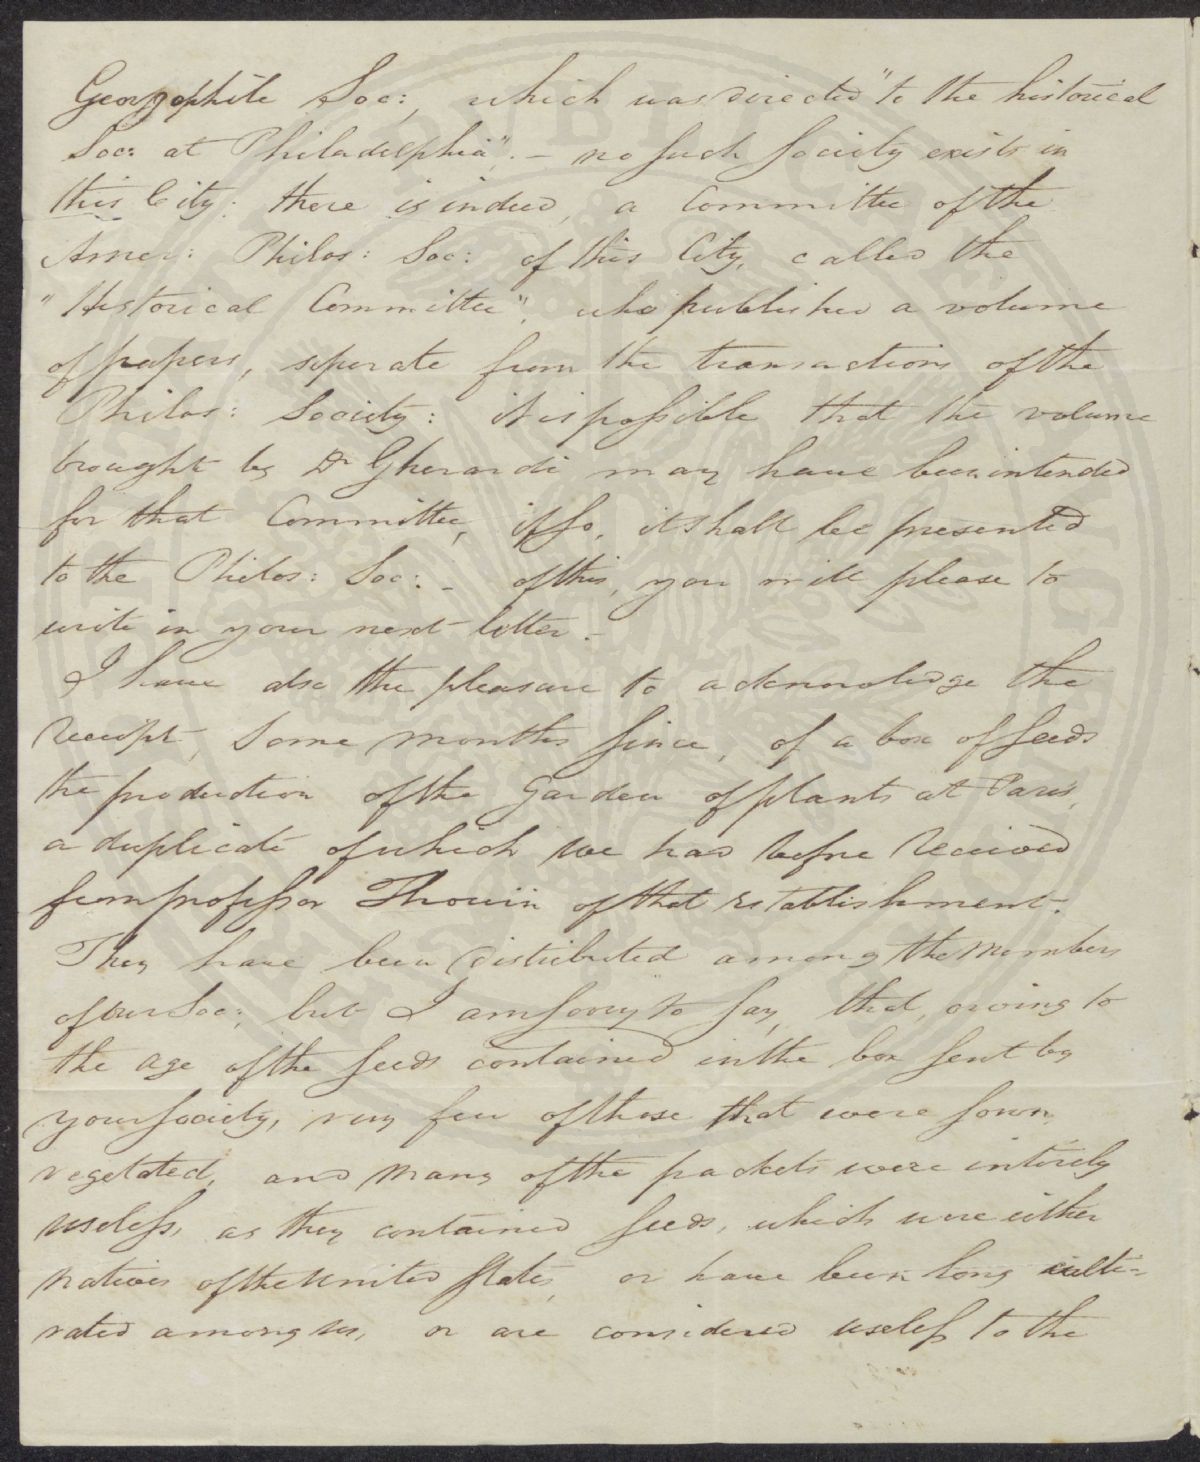 Georgophile Soc:, which was directed "to the historical
Soc: at Philadelphia". – no such Society exists in
this City: there is indeed, a Committee of the
Amer: Philos: Soc: of this City, called the
"Historical Committee", who publishes a volume
of papers, seperate from the transactions of the
Philos: Society: it is possible that the volume
brought by Dr Gherardi may have been intended
for that Committee, if so, it shall be presented
to the Philos: Soc: – of this, you will please to
write in your next letter. –
I have also the pleasure to acknowledge the
receipt, some months since, of a box of seeds
the production of the Garden of plants at Paris,
a duplicate of which we had before received
from professor Thouin of that establishment.
They have been distributed among the members
of our Soc:, but I am sorry to say, that, owing to
the age of the seeds contained in the box sent by
your Society, very few of those that were sown,
vegetated, and many of the packets were intirely
useless, as they contained seeds, which were either
natives of the United States, or have been long culti=
vated among us, or are considered useless to the